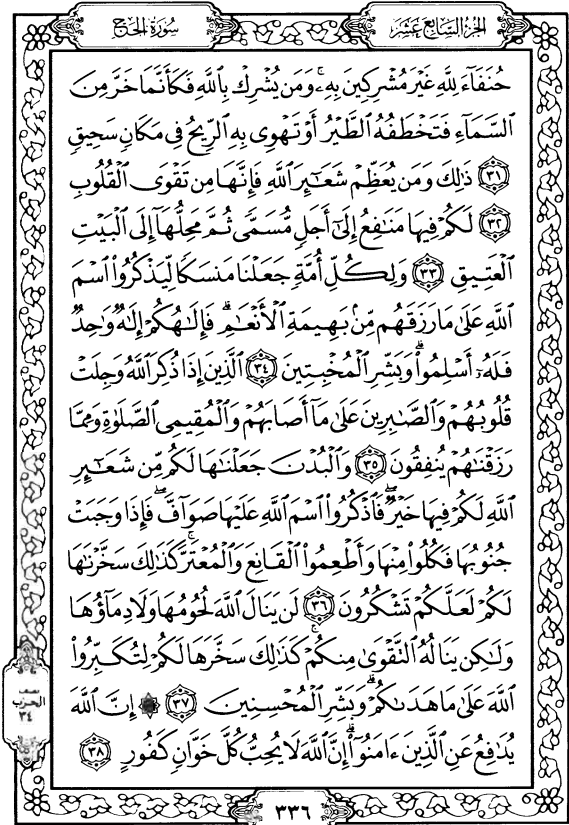 سُورَةُ الحَجّ
الجُزءُ السَّابِعُ عَشَرَ
حُنَفَآءَ لِلَّهِ غَيۡرَ مُشۡرِكِينَ بِهِۦۚ وَمَن يُشۡرِكۡ بِٱللَّهِ فَكَأَنَّمَا خَرَّ مِنَ
ٱلسَّمَآءِ فَتَخۡطَفُهُ ٱلطَّيۡرُ أَوۡ تَهۡوِي بِهِ ٱلرِّيحُ فِي مَكَانٖ سَحِيقٖ
٣١ ذَٰلِكَ وَمَن يُعَظِّمۡ شَعَـٰٓئِرَ ٱللَّهِ فَإِنَّهَا مِن تَقۡوَى ٱلۡقُلُوبِ
٣٢ لَكُمۡ فِيهَا مَنَـٰفِعُ إِلَىٰٓ أَجَلٖ مُّسَمّٗى ثُمَّ مَحِلُّهَآ إِلَى ٱلۡبَيۡتِ
ٱلۡعَتِيقِ ٣٣ وَلِكُلِّ أُمَّةٖ جَعَلۡنَا مَنسَكٗا لِّيَذۡكُرُواْ ٱسۡمَ
ٱللَّهِ عَلَىٰ مَا رَزَقَهُم مِّنۢ بَهِيمَةِ ٱلۡأَنۡعَـٰمِۗ فَإِلَـٰهُكُمۡ إِلَـٰهٞ وَٰحِدٞ
فَلَهُۥٓ أَسۡلِمُواْۗ وَبَشِّرِ ٱلۡمُخۡبِتِينَ ٣٤ ٱلَّذِينَ إِذَا ذُكِرَ ٱللَّهُ وَجِلَتۡ
قُلُوبُهُمۡ وَٱلصَّـٰبِرِينَ عَلَىٰ مَآ أَصَابَهُمۡ وَٱلۡمُقِيمِي ٱلصَّلَوٰةِ وَمِمَّا
رَزَقۡنَـٰهُمۡ يُنفِقُونَ ٣٥ وَٱلۡبُدۡنَ جَعَلۡنَـٰهَا لَكُم مِّن شَعَـٰٓئِرِ
ٱللَّهِ لَكُمۡ فِيهَا خَيۡرٞۖ فَٱذۡكُرُواْ ٱسۡمَ ٱللَّهِ عَلَيۡهَا صَوَآفَّۖ فَإِذَا وَجَبَتۡ
جُنُوبُهَا فَكُلُواْ مِنۡهَا وَأَطۡعِمُواْ ٱلۡقَانِعَ وَٱلۡمُعۡتَرَّۚ كَذَٰلِكَ سَخَّرۡنَـٰهَا
لَكُمۡ لَعَلَّكُمۡ تَشۡكُرُونَ ٣٦ لَن يَنَالَ ٱللَّهَ لُحُومُهَا وَلَا دِمَآؤُهَا
وَلَـٰكِن يَنَالُهُ ٱلتَّقۡوَىٰ مِنكُمۡۚ كَذَٰلِكَ سَخَّرَهَا لَكُمۡ لِتُكَبِّرُواْ
ٱللَّهَ عَلَىٰ مَا هَدَىٰكُمۡۗ وَبَشِّرِ ٱلۡمُحۡسِنِينَ ٣٧ ۞ إِنَّ ٱللَّهَ
يُدَٰفِعُ عَنِ ٱلَّذِينَ ءَامَنُوٓاْۗ إِنَّ ٱللَّهَ لَا يُحِبُّ كُلَّ خَوَّانٖ كَفُورٍ ٣٨
نصف
الحزب
٣٤
٣٣٦